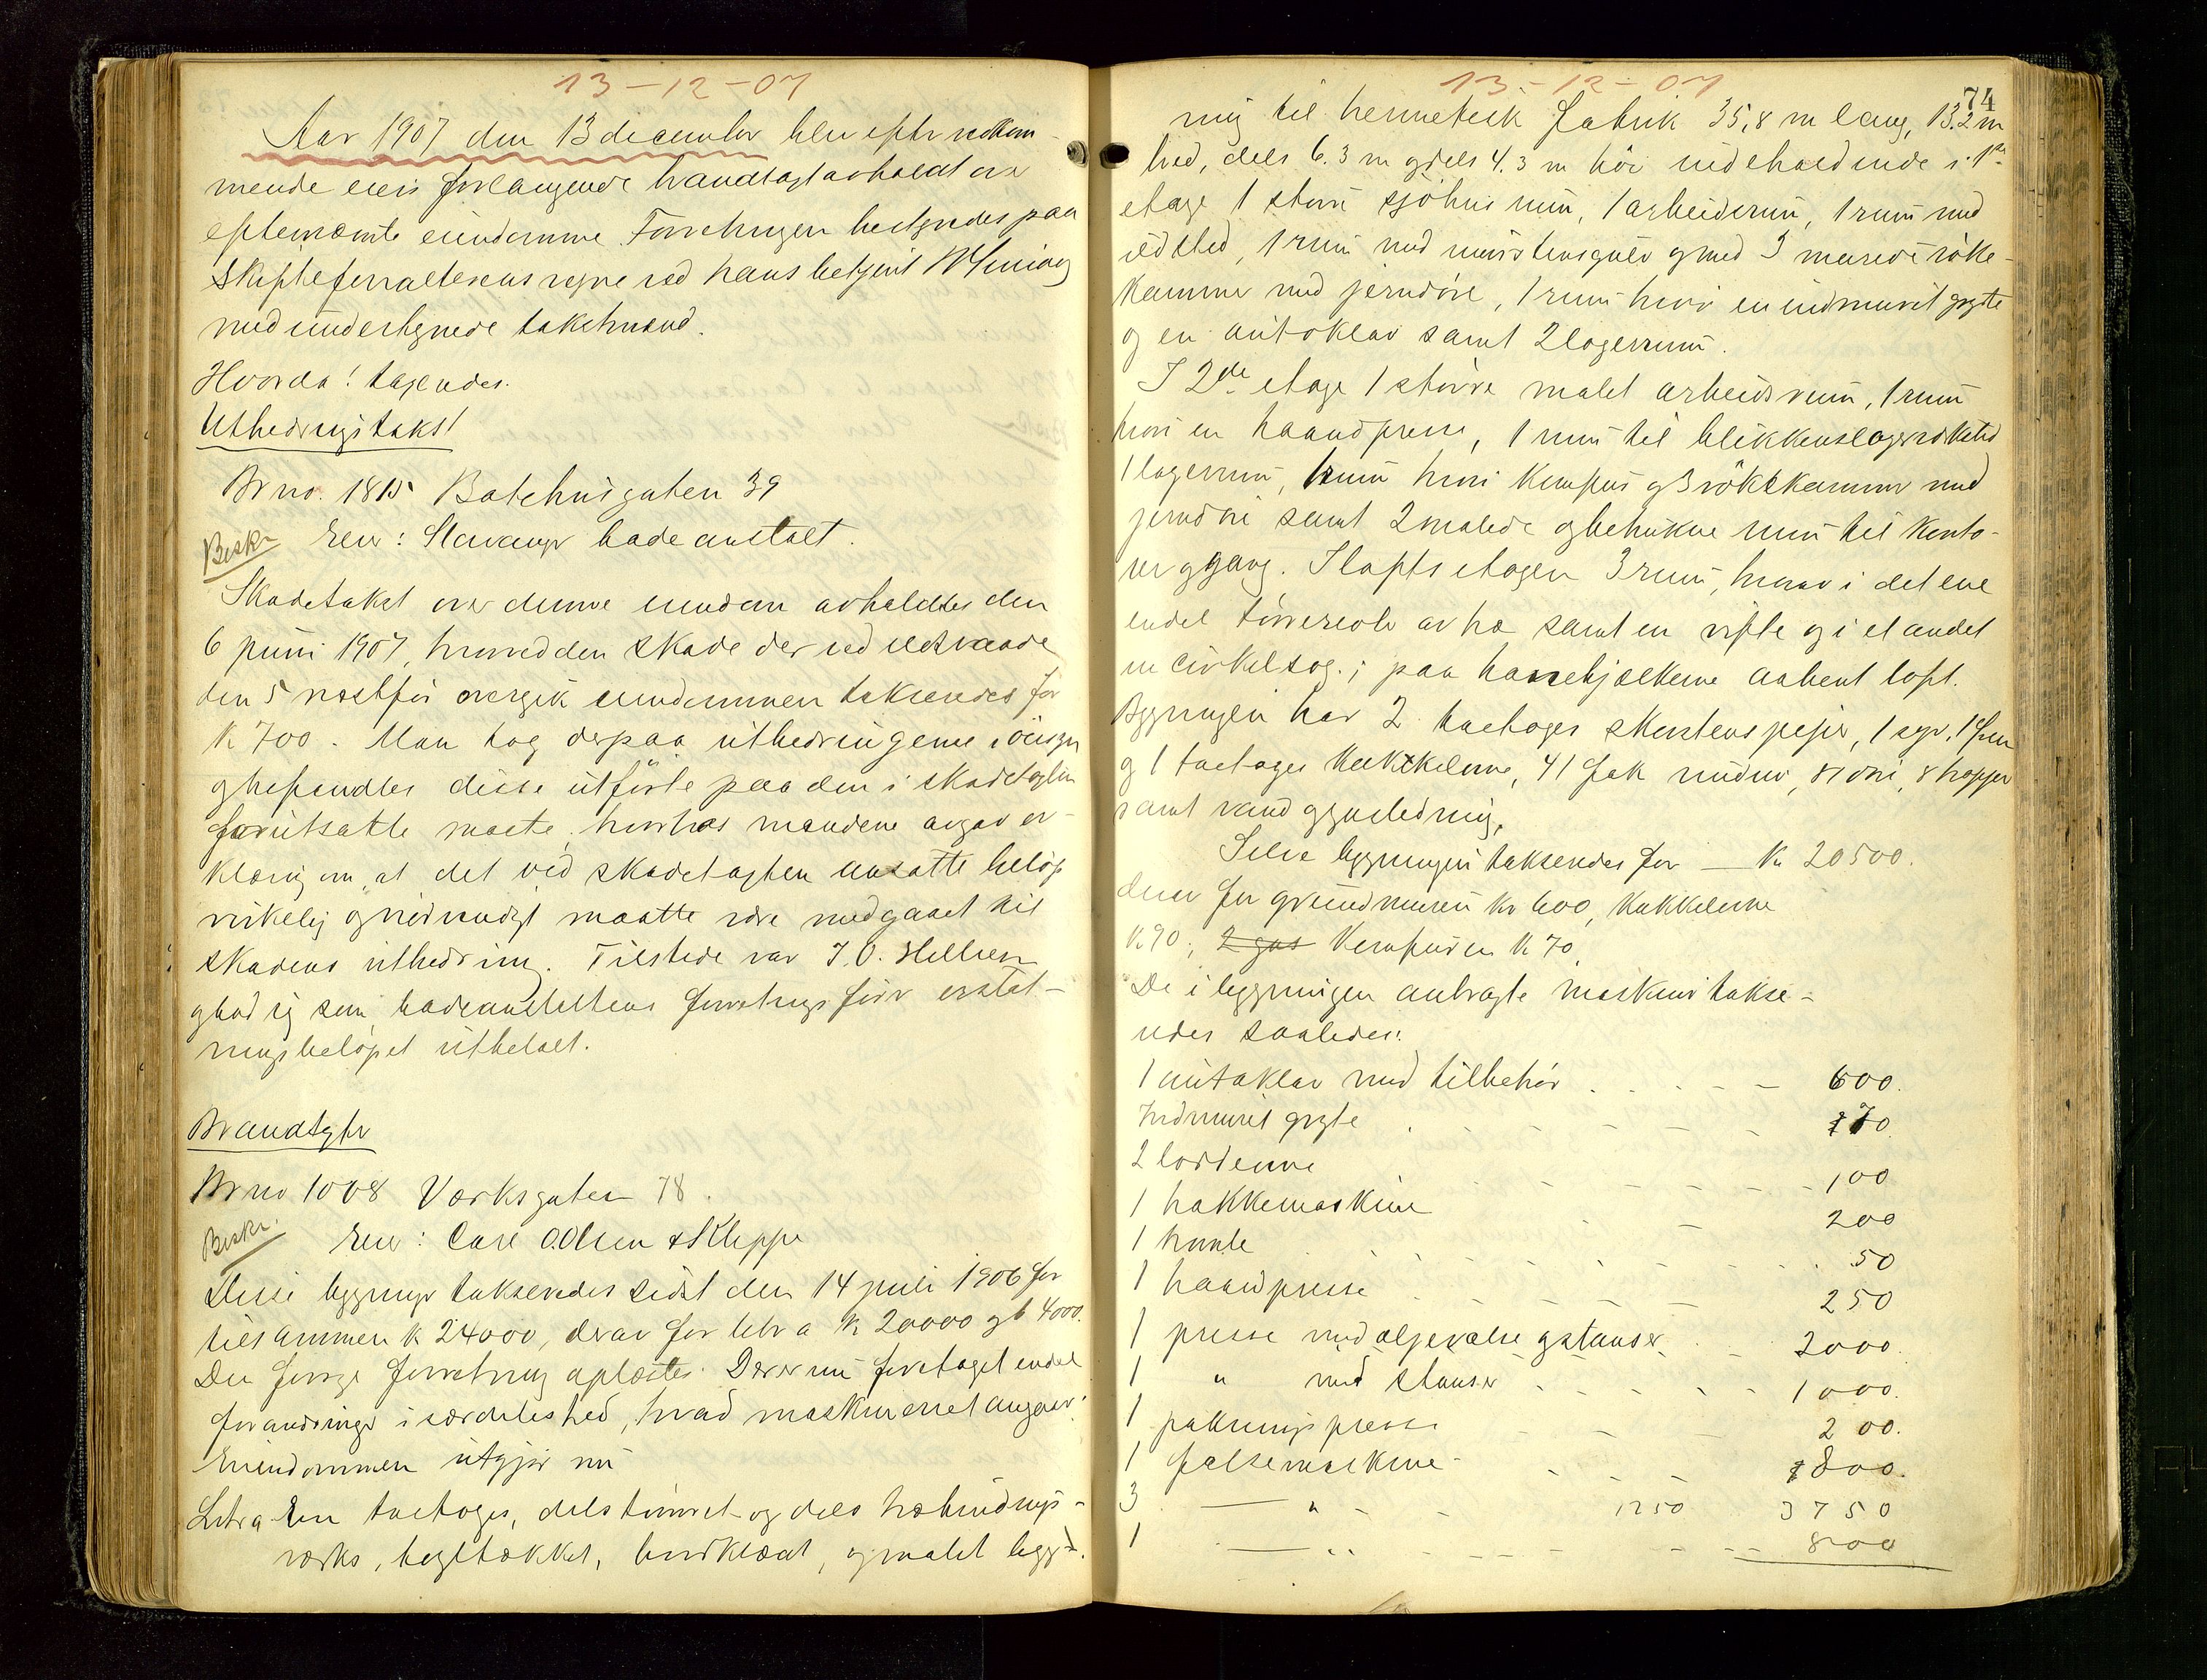 13-12-07
Aar 1907 den 13 december blev efter vedkom-
mende eiers forlangende brandtakst avholdt over
eftemævnte eiendomme. Forretningen bestyredes paa
Skifteforvalterens vegne ved hans betjent
med undertegnede takstmænd.
Hvorda! tagendes.
Utbedringstakst
Br no. 1815 Badehusgaten 39
Beskr
Eier: Stavanger badeanstalt.
Skadetakst over denne eiendom avholdtes den
6 juni 1907, hvorved den skade der ved ildsvaade
den 5 næstfør overgik eiendommen takseredes for
K 700. Man tog derpaa utbedringerne i öiesyn
og befandtes disse utförte paa den i skadetagten
forutsatte maate, hvorhos mændene avgav er-
klæring om, at det ved skadetagten ansatte belöp
virkelig og nödvendigt maatte være medgaaet til
skadens utbedring. Tilstede var J. O. Hellisen
og bad sig som badeanstaltens forretningsförer erstat-
ningsbelöpet utbetalt.
Brandtagter
Br no 1008 Værksgaten 78.
Beskr.
Eier: Carl O. Olsen & Kleppe
Disse bygninger takseredes sidst den 14 juli 1906 for
tilsammen k 24000, derav for litr a k 20000 og b 4000.
Den forrige forretning oplæstes. Der er nu foretaget endel
forandringer i særdeleshed, hvad maskineriet angaar.
Eiendommen utgjör nu
Litr a En toetages, dels tömret og dels halvbindings-
verks, tegltækket, bordklædt, og malet byg-
13-12-07
74
ning til hermetisk fabrik 35,8 m lang, 13.2 m
bred, dels 6.3 m og dels 4.3 m höi indeholdende i 1ste
etage 1 större sjöhusrum, 1 arbeidsrum, 1 rum med
ildsted, 1 rum med murstensgulv og med 3 murede röke-
kammer med jerndöre, 1 rum hvori en indmuret gryte
og en autoklav samt 2 lagerrum.
I 2de etage 1 större malet arbeidsrum, 1 rum
hvori en haandpresse, 1 rum til blikkenslagerverksted
1 lagerrum, 1 rum hvori komfur og 3 rökekammer med
jerndöre samt 2 malede og betrukne rum til konto-
rer og gang. I loftsetagen 3 rum, hvorav i det ene
endel törrereoler av træ samt en vifte og i et andet
en cirkelsag; paa hanebjælkerne aabent loft.
Bygningen har 2 toetages skorstenspiper, 1
og 1 toetages kakkelovne, 41 fak vinduer, 81 döre, 8 trapper
samt vand og gasledning.
Selve bygningen takseredes for — K 20500.
derav for grundmuren kr 600, kakkelovne
K 90; 2 gas Komfuren K 70,
De i bygningen anbragte maskiner takse-
redes saaledes:
1 autoklav med tilbehör . . . - - 600.
Indmuret gryte . - - - - - 70.
2 - - - - 100
1 hakkemaskine - - 200
1 . . . - - - 50
1 haandpresse . - - - - 250
1 presse med oljevalse og stanser - - 2000.
1 " med stanser - - - - 1000.
1 pakningspresse - - 200.
1 falsemaskine - - - - 800.
3 — " - - 1250 3750
1 — " - - - - 800